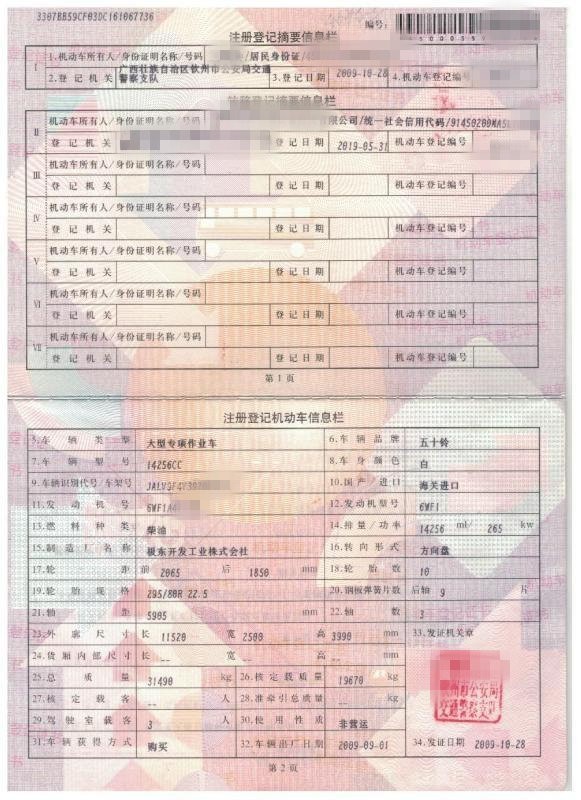 3307BB59CF03DC161067736
注册登记摘要信息栏
编号:
I
1.机动车所有人/身份证明名称/号码
/居民身份证/
2.登记机关
广西壮族自治区钦州市公安局交通警察支队
3.登记日期
2009-10-28
4.机动车登记编号
登记摘要信息栏
II
机动车所有人/身份证明名称/号码
限公司/统一社会信用代码/91450200MA5
登记机关
登记日期
2019-05-31
机动车登记编号
III
机动车所有人/身份证明名称/号码
登记机关
登记日期
机动车登记编号
IV
机动车所有人/身份证明名称/号码
登记机关
登记日期
机动车登记编号
V
机动车所有人/身份证明名称/号码
登记机关
登记日期
机动车登记编号
VI
机动车所有人/身份证明名称/号码
登记机关
登记日期
机动车登记编号
VII
机动车所有人/身份证明名称/号码
登记机关
登记日期
机动车登记编号
第1页
注册登记机动车信息栏
5.车辆类型
大型专项作业车
6.车辆品牌
五十铃
7.车辆型号
14256CC
8.车身颜色
白
9.车辆识别代号/车架号
10.国产/进口
海关进口
11.发动机号
6WF1A4
12.发动机型号
6WF1
13.燃料种类
柴油
14.排量/功率
14256 ml/ 265 kw
15.制造厂名称
极东开发工业株式会社
16.转向形式
方向盘
17.轮距
前 2065 后 1850 mm
18.轮胎数
10
19.轮胎规格
295/80R 22.5
20.钢板弹簧片数
后轴 9 片
21.轴距
5905 mm
22.轴数
3
23.外廓尺寸
长 11520 宽 2500 高 3990 mm
33.发证机关章
24.货厢内部尺寸
长 -- 宽 -- 高 -- mm
25.总质量
31490 kg
26.核定载质量
19670 kg
27.核定载客
-- 人
28.准牵引总质量
-- kg
29.驾驶室载客
3 人
30.使用性质
非营运
31.车辆获得方式
购买
32.车辆出厂日期
2009-09-01
34.发证日期
2009-10-28
第2页